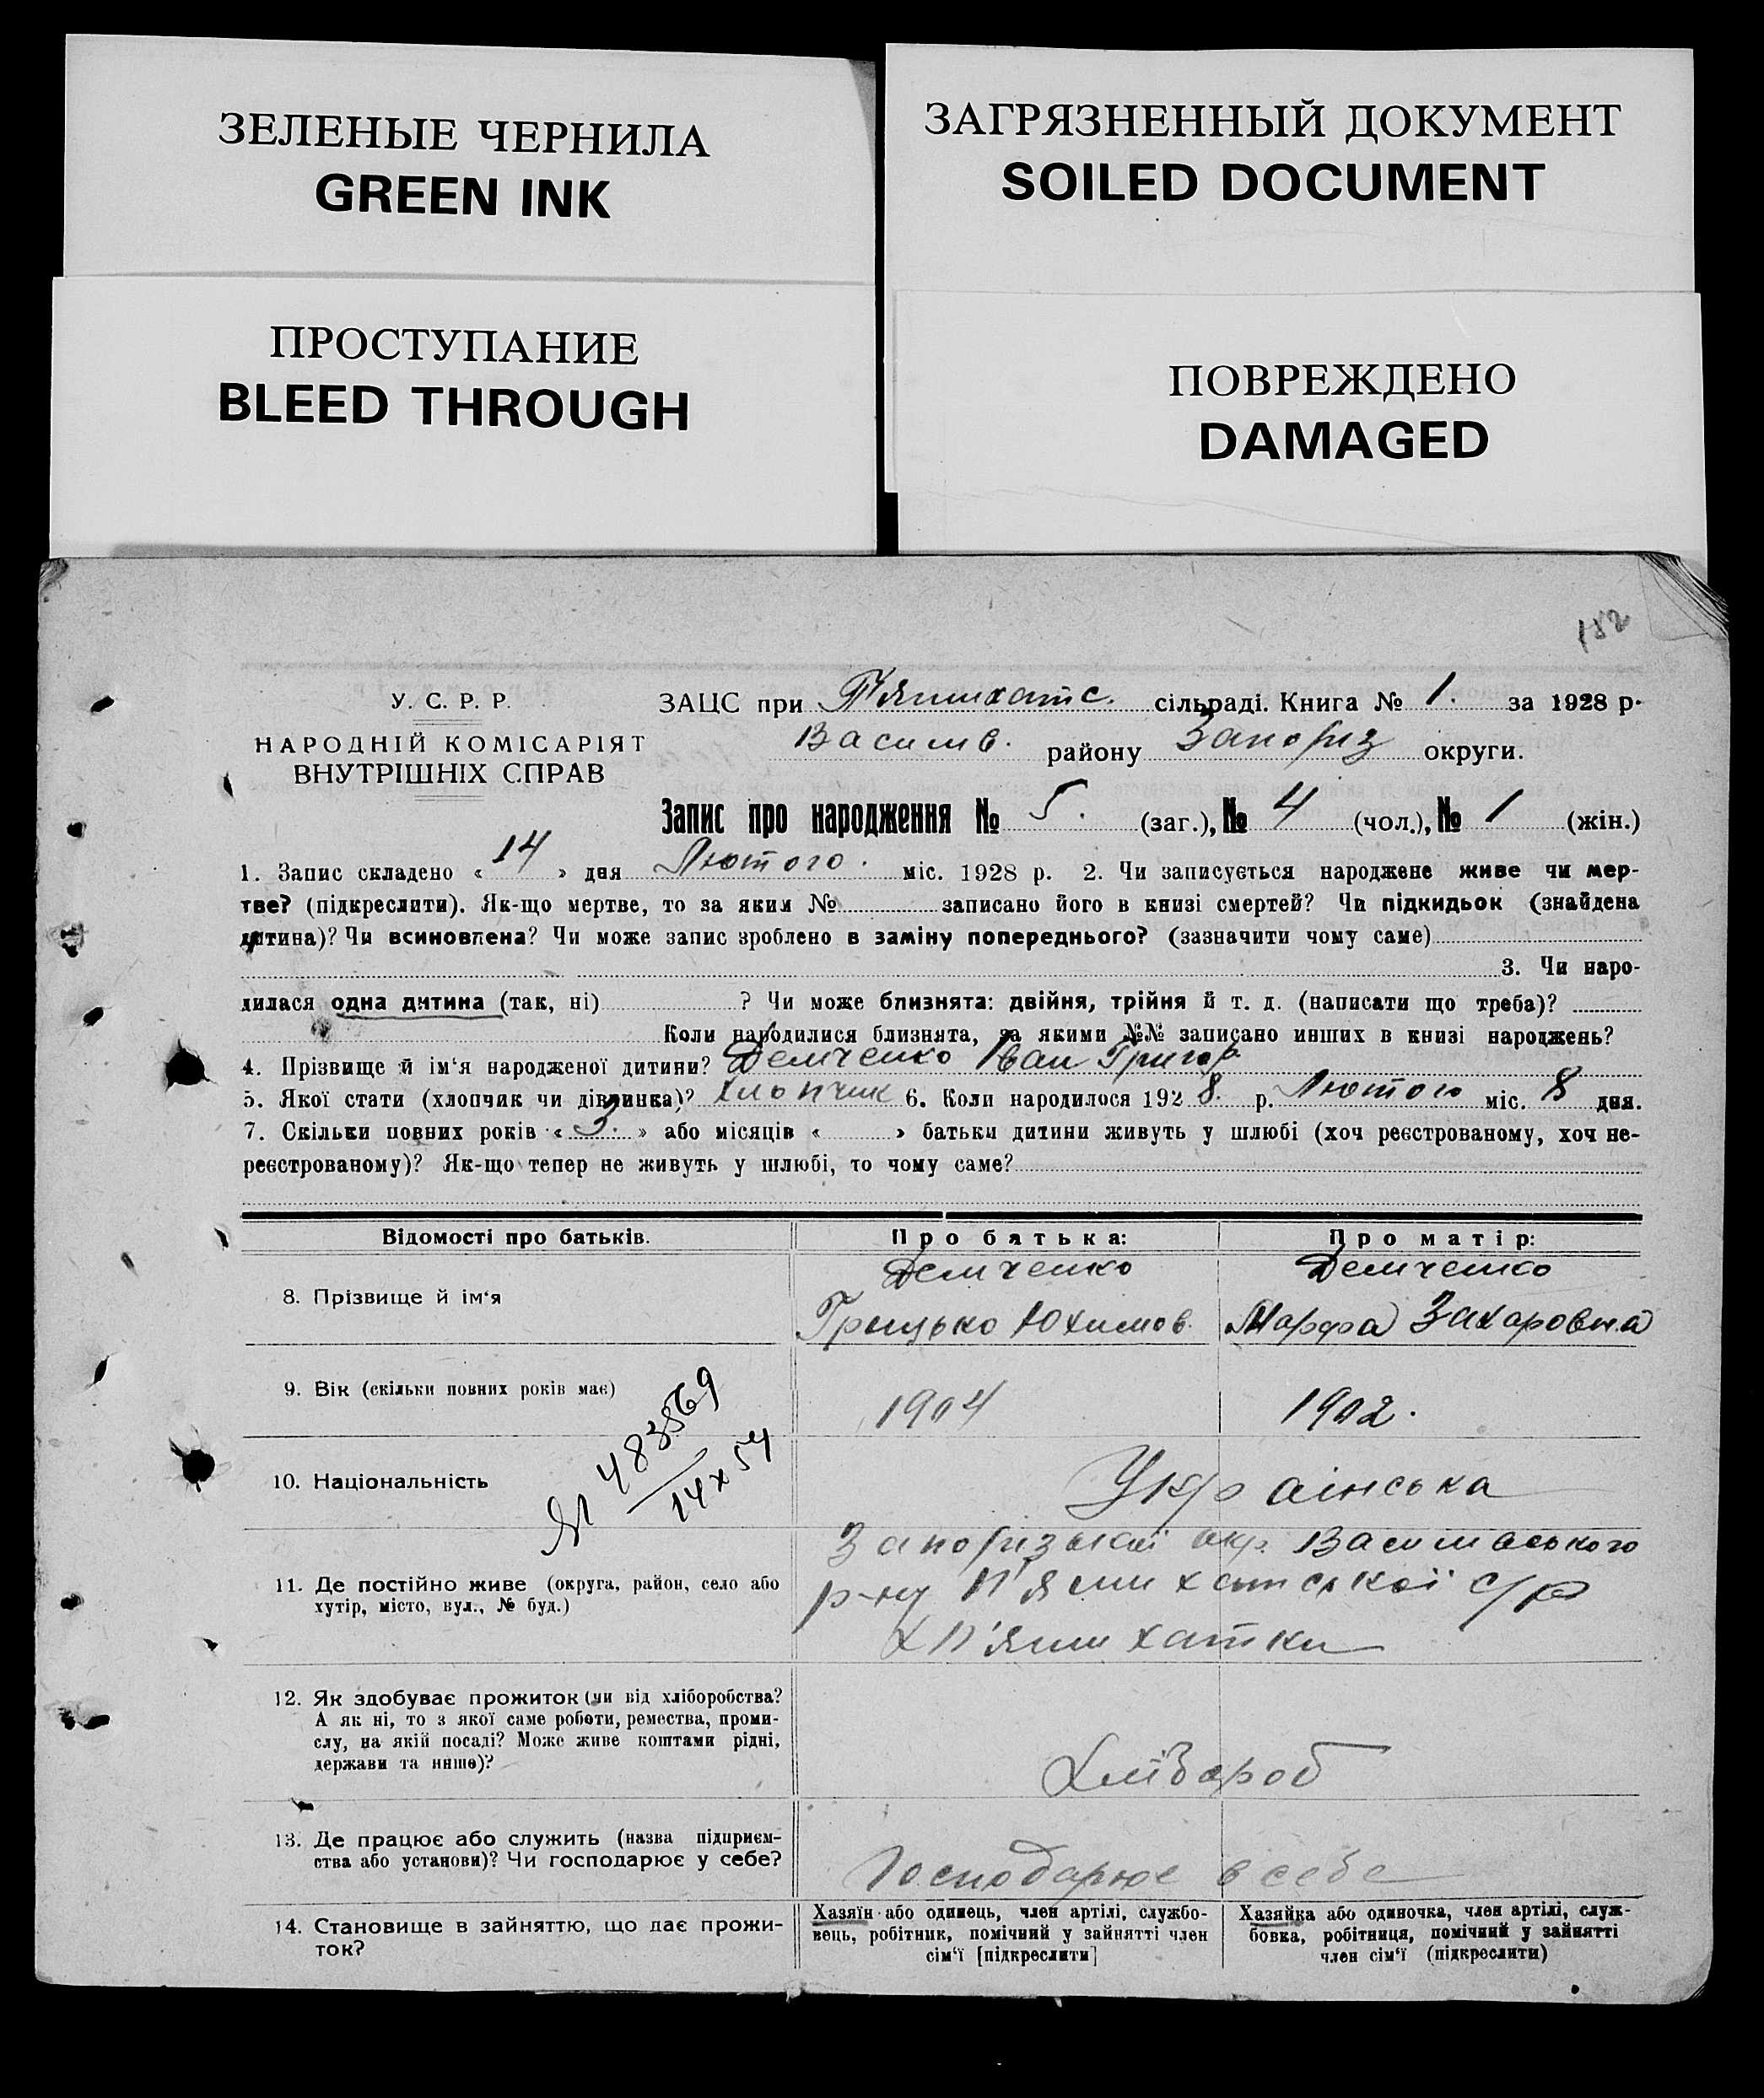 ЗЕЛЕНЫЕ ЧЕРНИЛА
GREEN INK
ЗАГРЯЗНЕННЫЙ ДОКУМЕНТ
SOILED DOCUMENT
ПРОСТУПАНИЕ
BLEED THROUGH
ПОВРЕЖДЕНО
DAMAGED
182
У. С. Р. Р.
НАРОДНІЙ КОМІСАРІЯТ
ВНУТРІШНІХ СПРАВ
ЗАЦС при П'ятихатс. сільраді. Книга № 1. за 1928 р.
Василів. району Запоріз округи.
Запис про народження № 5. (заг.), № 4 (чол.), № 1 (жін.)
1. Запис складено « 14 » дня Лютого. міс. 1928 р. 2. Чи записується народжене живе чи мер-
тве? (підкреслити). Як-що мертве, то за яким № записано його в книзі смертей? Чи підкидьок (знайдена
дитина)? Чи всиновлена? Чи може запис зроблено в заміну попереднього? (зазначити чому саме)
3. Чи наро-
дилася одна дитина (так, ні) ? Чи може близнята: двійня, трійня й т. д. (написати що треба)?
Коли народилися близнята, за якими №№ записано инших в книзі народжень?
4. Прізвище й ім'я народженої дитини? Демченко Іван Григор
5. Якої стати (хлопчик чи дівчинка)? Хлопчик 6. Коли народилося 192 8. р. Лютого міс. 8 дня.
7. Скільки повних років « 3. » або місяців « » батьки дитини живуть у шлюбі (хоч реєстрованому, хоч не-
реєстрованому)? Як-що тепер не живуть у шлюбі, то чому саме?
Відомості про батьків. Про батька: Про матір:
8. Прізвище й ім'я Демченко Грицько Юхимов. Демченко Марфа Захаровна
9. Вік (скільки повних років має) 1904 1902.
483569
14 x 54
10. Національність Українська
11. Де постійно живе (округа, район, село або
хутір, місто, вул., № буд.)
Запорізької окр. Василівського
р-ну П'ятихатської с/р
х П'ятихатки
12. Як здобуває прожиток (чи від хліборобства?
А як ні, то з якої саме роботи, ремества, проми-
слу, на якій посаді? Може живе коштами рідні,
держави та инше)?
Хлібороб
13. Де працює або служить (назва підприєм-
ства або установи)? Чи господарює у себе?
Господарює в себе
14. Становище в зайняттю, що дає прожи-
ток?
Хазяїн або одинець, член артілі, службо-
вець, робітник, помічний у зайнятті член
сім'ї [підкреслити]
Хазяйка або одиночка, член артілі, служ-
бовка, робітниця, помічний у зайнятті
член сім'ї (підкреслити)